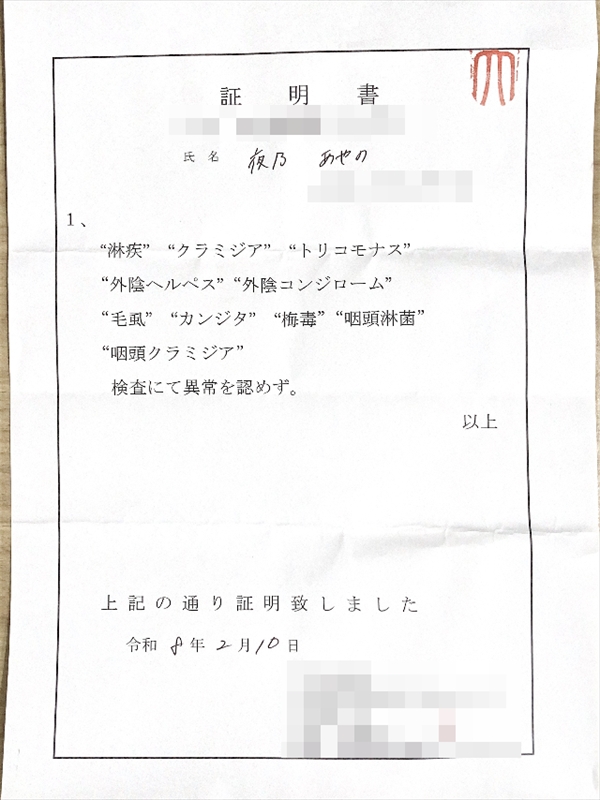 証明書
氏名 夜乃 あやの
1、
“淋疾” “クラミジア” “トリコモナス”
“外陰ヘルペス” “外陰コンジローム”
“毛虱” “カンジタ” “梅毒” “咽頭淋菌”
“咽頭クラミジア”
検査にて異常を認めず。
以上
上記の通り証明致しました
令和8年2月10日